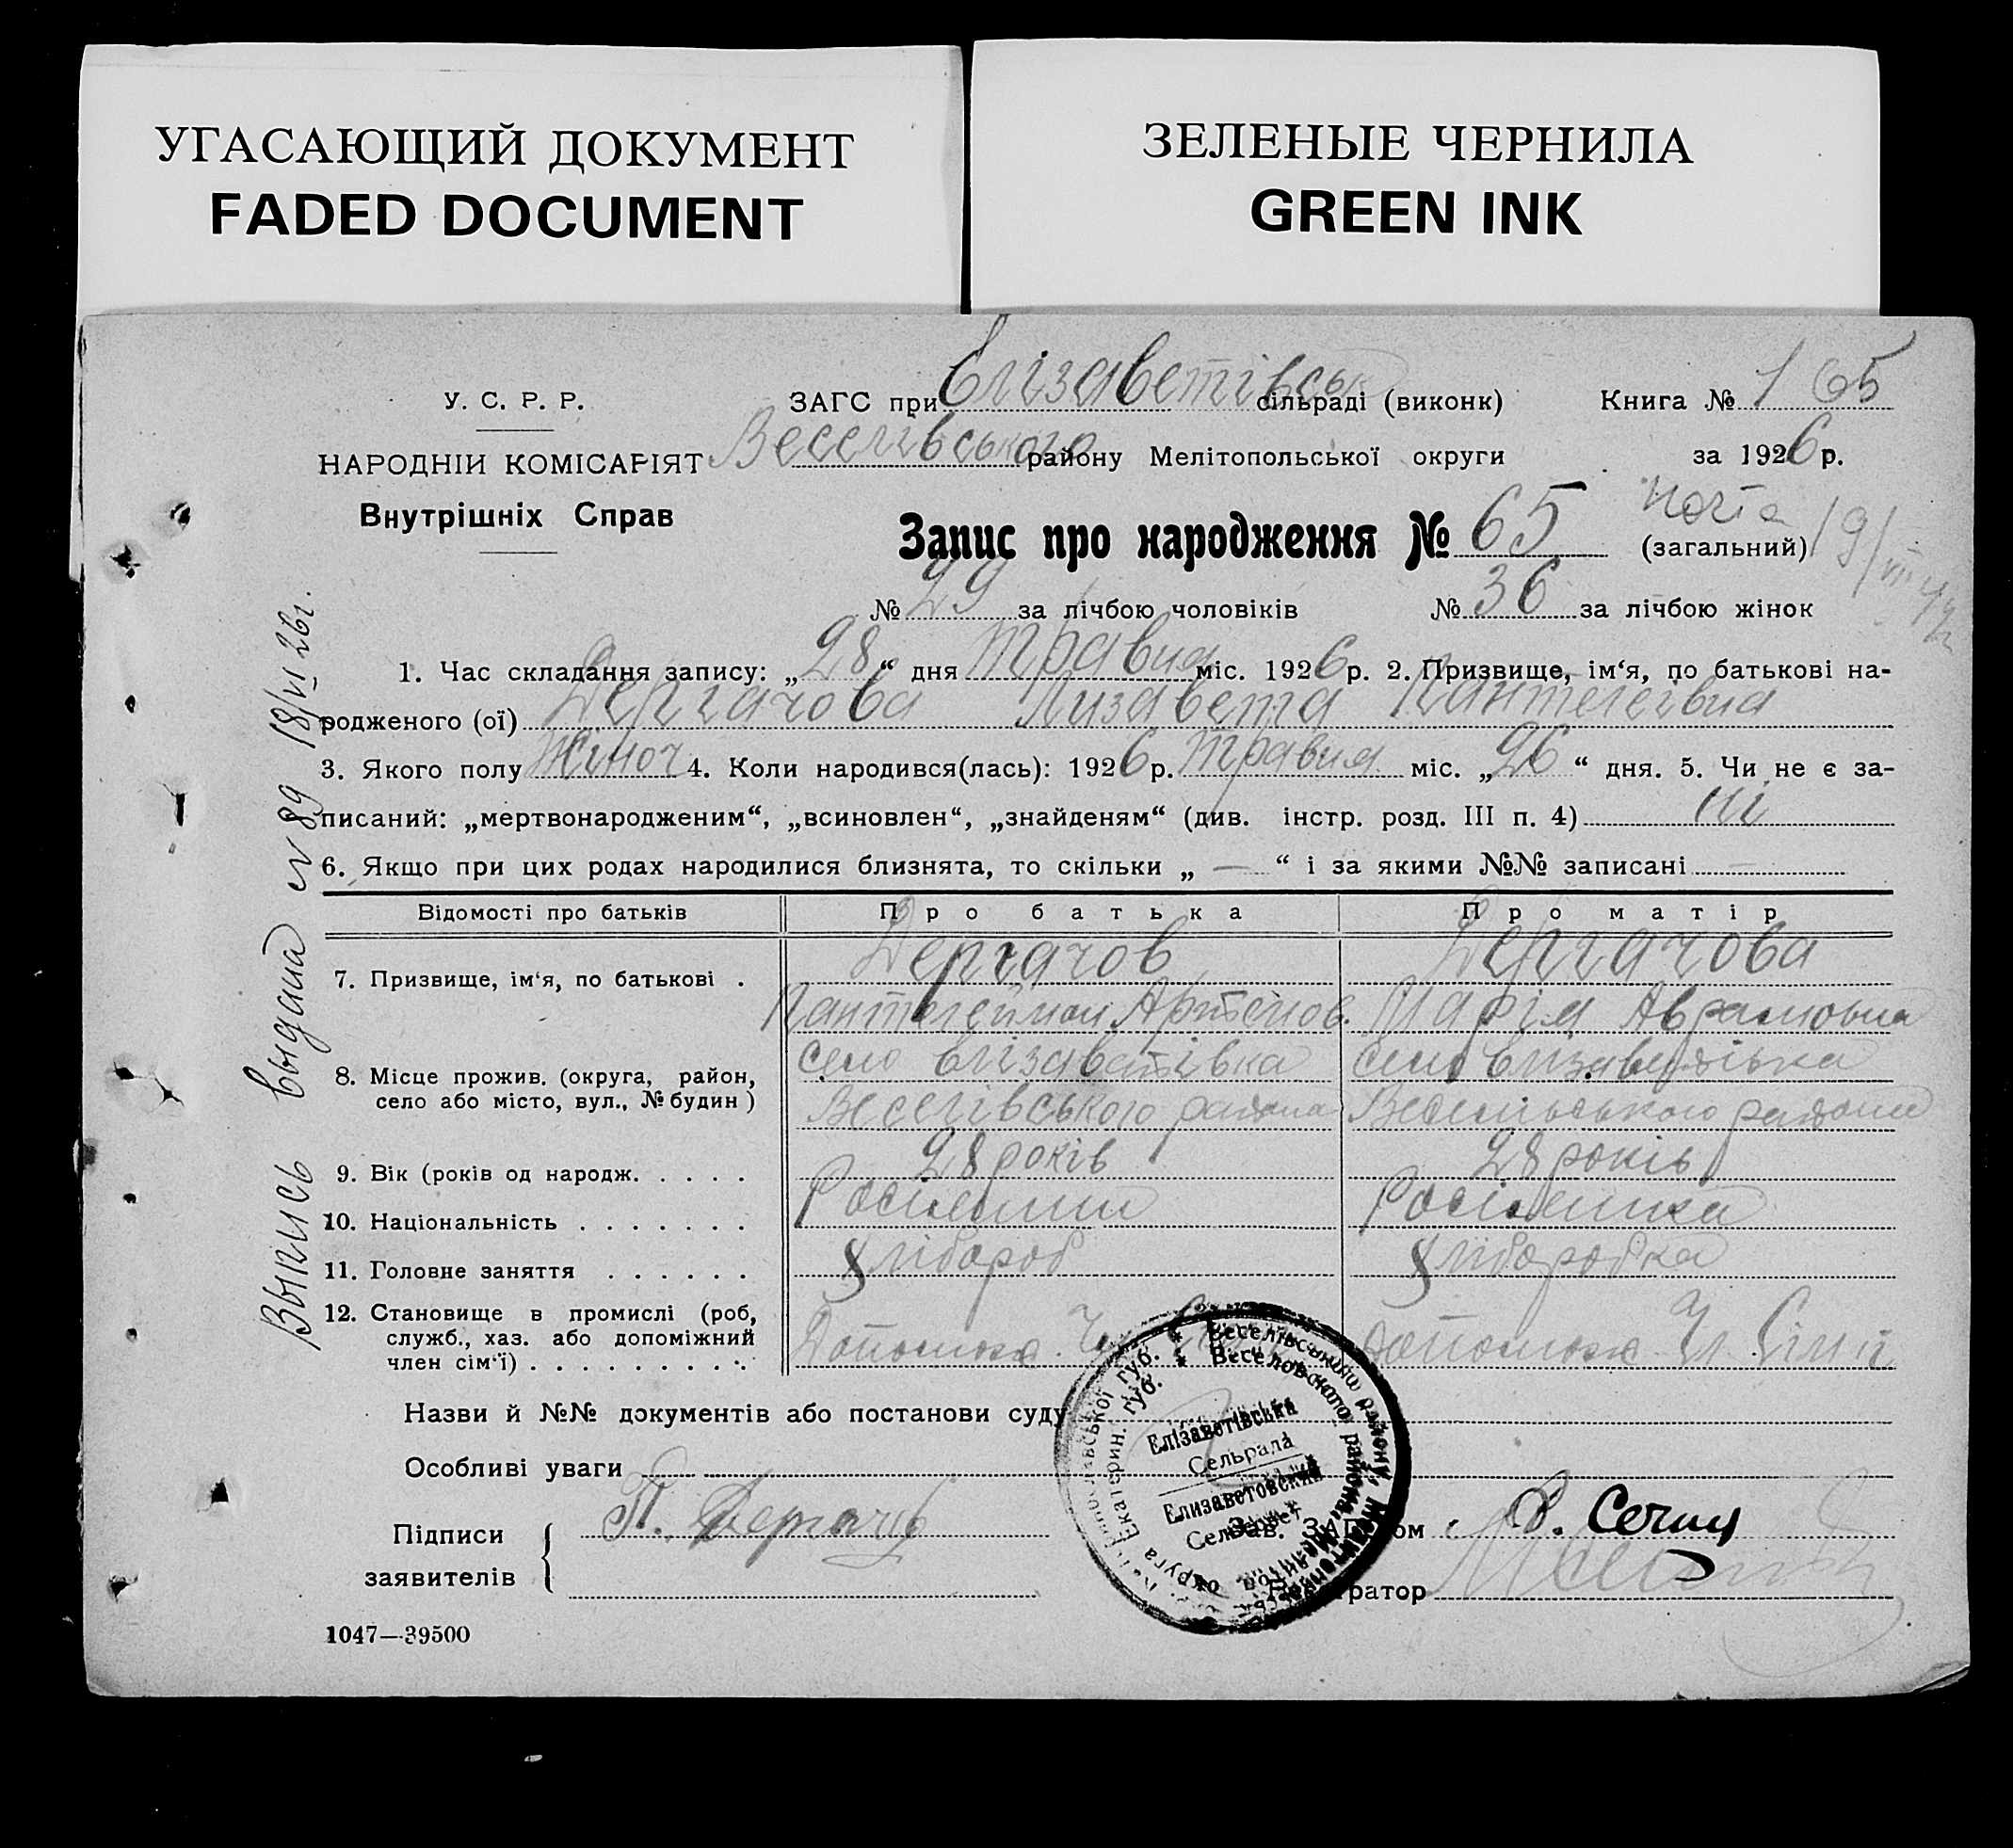 УГАСАЮЩИЙ ДОКУМЕНТ
FADED DOCUMENT
ЗЕЛЕНЫЕ ЧЕРНИЛА
GREEN INK
У. С. Р. Р.
НАРОДНІИ КОМІСАРІЯТ
Внутрішніх Справ
ЗАГС при Єлізаветівськ сільраді (виконк) Книга № 1 65
Веселівського району Мелітопольської округи за 1926 р.
Запис про народження № 65 (загальний)
№ 29 за лічбою чоловіків № 36 за лічбою жінок
1. Час складання запису: „28“ дня травня міс. 1926 р. 2. Призвище, ім‘я, по батькові на-
родженого (ої) Дергачова Лизавета Пантелеівна
3. Якого полу жіноч 4. Коли народився(лась): 1926 р. травня міс. „26“ дня. 5. Чи не є за-
писаний: „мертвонародженим“, „всиновлен“, „знайденям“ (див. інстр. розд. III п. 4) ні
6. Якщо при цих родах народилися близнята, то скільки „ — “ і за якими №№ записані —
Відомості про батьків Про батька Про матір
7. Призвище, ім‘я, по батькові . Дергачов Дергачова
Пантелеймон Артемов. Марія Аврамовна
8. Місце прожив. (округа, район, село Єлізаветівка село Єлізаветівка
село або місто, вул., № будин) Веселівського района Веселівського района
9. Вік (років од народж. . . . . 28 років 28 років
10. Національність . . . . . . . Росіянин Росіянка
11. Головне заняття . . . . . . Хлібороб Хліборобка
12. Становище в промислі (роб,
служб., хаз. або допоміжний
член сім‘ї) . . . . . . . . . Допоміж. Чл. Допоміж Чл. Сімї
Назви й №№ документів або постанови суду
Особливі уваги
Підписи
заявителів П. Дергачов
Зав. ЗАГСом
1047—39500
Выпись выдана № 89 18/VI 26г.
Веселівського району
Веселовского района
Елізаветівська
Сельрада
Елизаветовский
Сельсовет